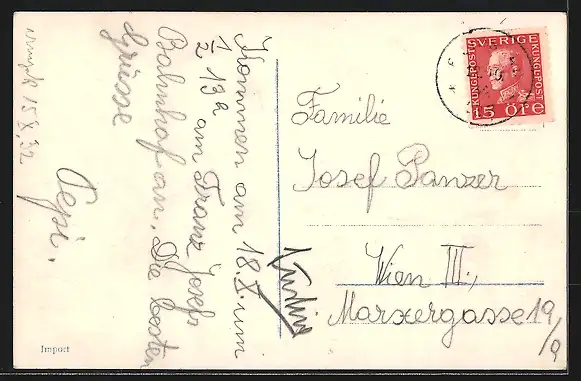 Kommen am 18.X. um
1/2 13a am Franz Josefs
Bahnhof an. Die besten
Grüsse
Pepi.
15.X.32
Familie
Josef Panzer
Wien III.,
Marxergasse 19/9
SVERIGE
KUNGL·POST
KUNGL·POST
15 ÖRE
Import